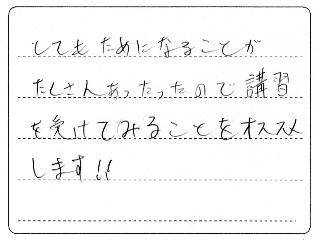 してもためになることが
たくさんあったったので講習
を受けてみることをオススメ
します!!